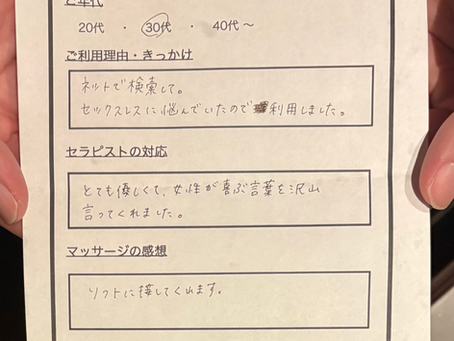 ご年代
20代 ・ 30代 ・ 40代～
ご利用理由・きっかけ
ネットで検索して。
セックスレスに悩んでいたので利用しました。
セラピストの対応
とても優しくて、女性が喜ぶ言葉を沢山
言ってくれました。
マッサージの感想
ソフトに接してくれます。